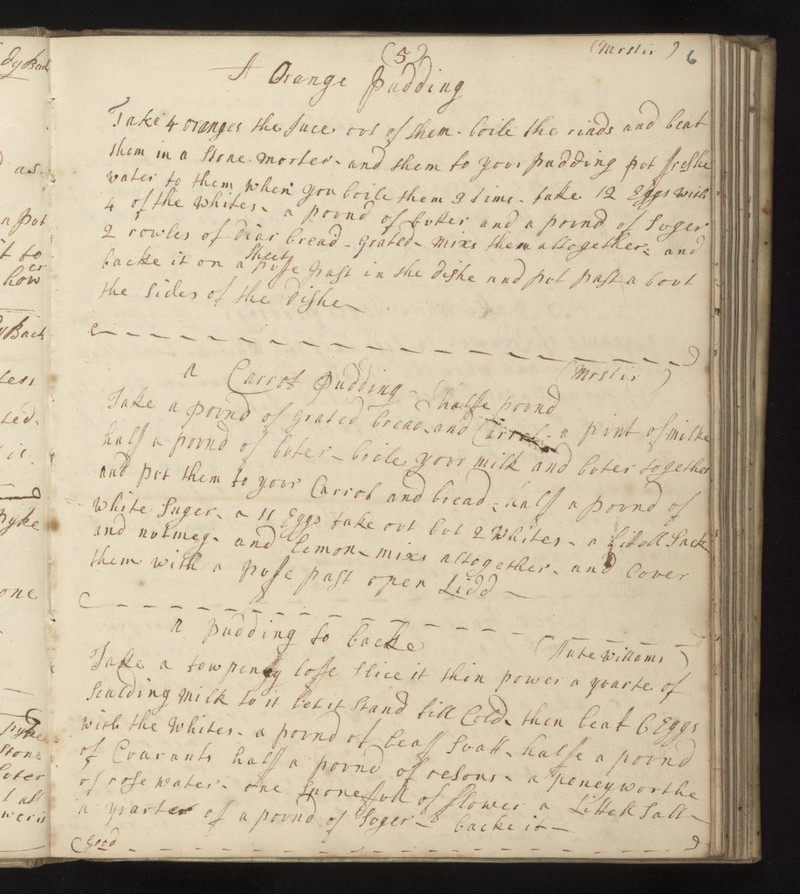 (5)
(Mrs Sir ) 6
A Orange pudding
Take 4 oranges the Juce out of them - boile the rinds and beat
them in a stone morter - and them to your pudding put freshe
water to them when you boile them 3 tims - take 12 Eggs with
4 of the whites - a pound of buter and a pound of Suger
2 rowles of Diar bread - grated - mixs them altogether - and
backe it on a Sheet puffe past in the dishe and put past a bout
the sides of the dishe -
A Carrot pudding - (halfe pound (Mrs Sir )
Take a pound of grated bread - and Carrot - a pint of milke
half a pound of buter - boile your milk and buter together
and put them to your Carrot and bread - half a pound of
white Suger - a 11 Eggs take out but 2 whites - a littell Sack
and nutmeg - and lemon - mixs altogether - and Cover
them with a puffe past open Lidd -
A pudding to backe (Ante Willams )
Take a tow peney loffe slice it thin power a quarte of
scalding milk to it let it stand till Cold - then beat 6 Eggs
with the whites - a pound of beaff Suatt - halfe a pound
of Courants half a pound of resons - a peney worthe
of rose water - one sponefull of flower a Littell Salt -
a quarter of a pound of Suger - backe it -
(Good
dy Back
as
n pot
it to
er
how
y Back
ted
it
Pyke
one
Pyke
stone
buter
t all